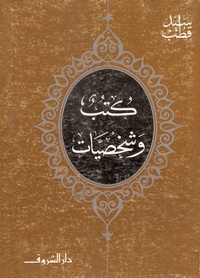 سيد
قطب
كُتُبٌ
وَشَخصيَات
دار الشروق